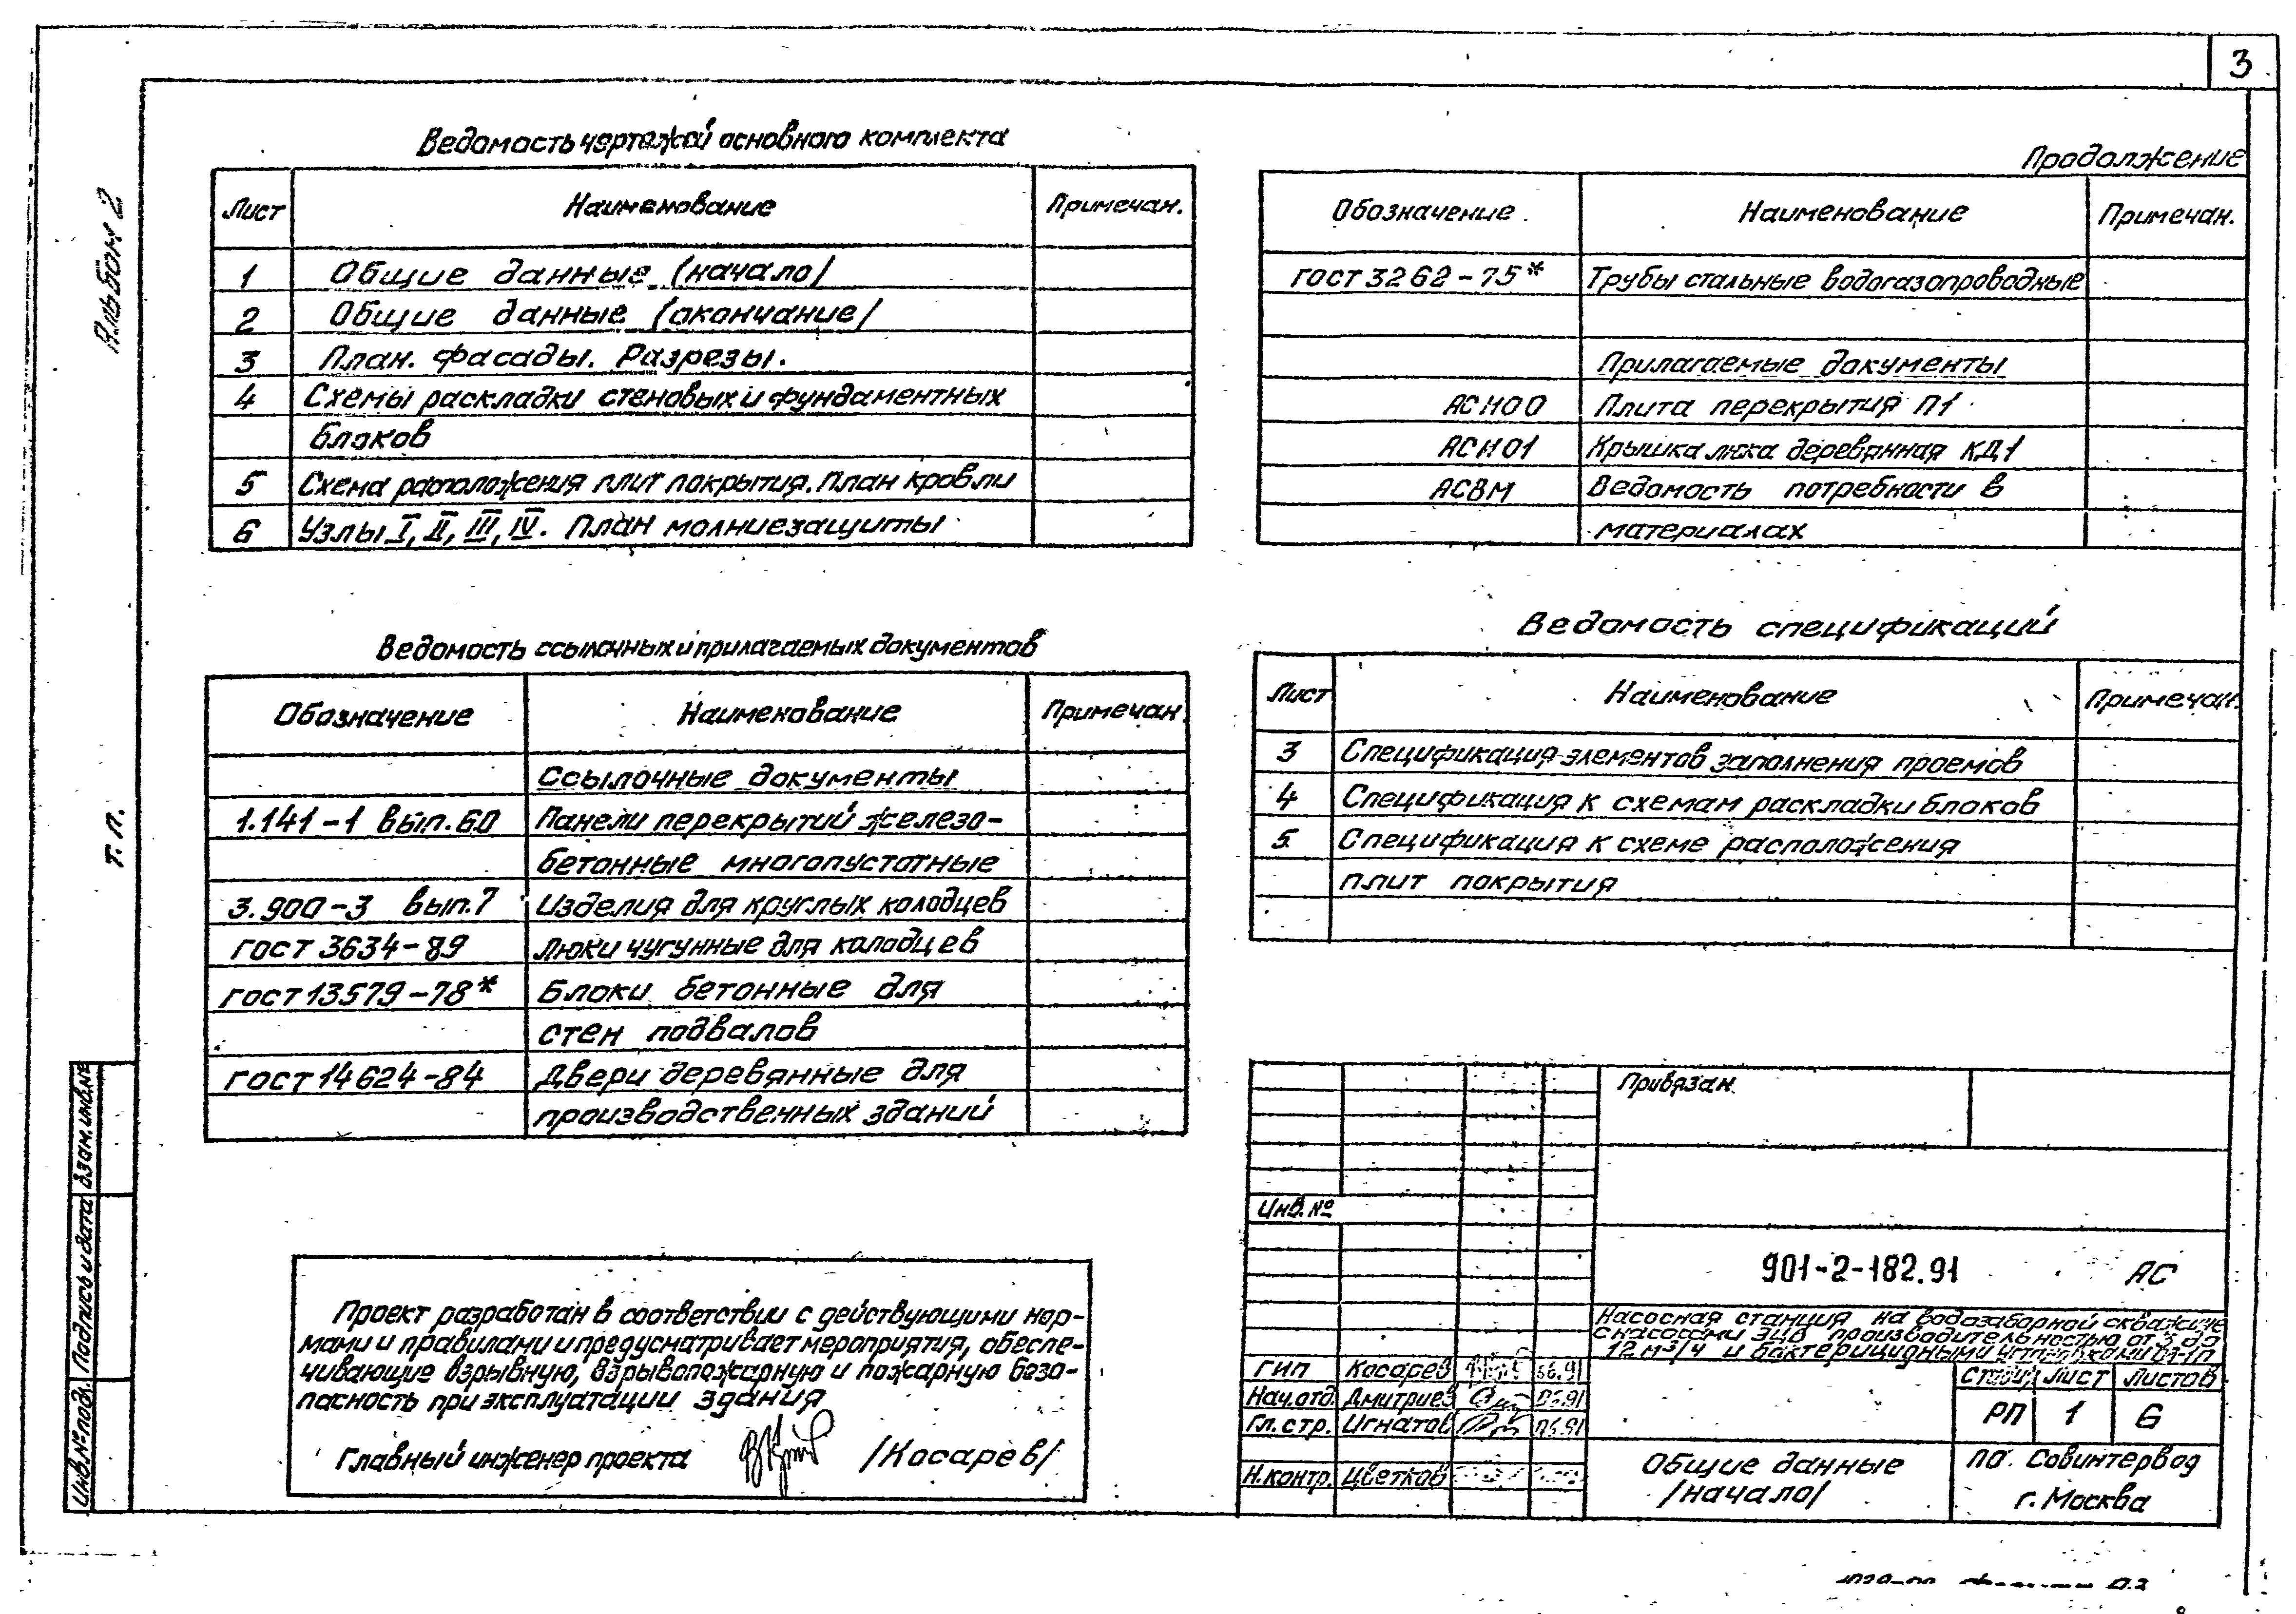 3
Альбом 2
Т. П.
Ведомость чертежей основного комплекта
Лист Наименование Примечан.
1 Общие данные /начало/
2 Общие данные /окончание/
3 План. Фасады. Разрезы.
4 Схемы раскладки стеновых и фундаментных
блоков
5 Схема расположения плит покрытия. План кровли
6 Узлы I, II, III, IV. План молниезащиты
Ведомость ссылочных и прилагаемых документов
Обозначение Наименование Примечан.
Ссылочные документы
1.141-1 вып. 60 Панели перекрытий железо-
бетонные многопустотные
3.900-3 вып. 7 Изделия для круглых колодцев
ГОСТ 3634-89 Люки чугунные для колодцев
ГОСТ 13579-78* Блоки бетонные для
стен подвалов
ГОСТ 14624-84 Двери деревянные для
производственных зданий
Проект разработан в соответствии с действующими нор-
мами и правилами и предусматривает мероприятия, обеспе-
чивающие взрывную, взрывопожарную и пожарную безо-
пасность при эксплуатации здания
Главный инженер проекта /Косарев/
Продолжение
Обозначение Наименование Примечан.
ГОСТ 3262-75* Трубы стальные водогазопроводные
Прилагаемые документы
АСИ00 Плита перекрытия П1
АСИ01 Крышка люка деревянная КД1
АСВМ Ведомость потребности в
материалах
Ведомость спецификаций
Лист Наименование Примечан.
3 Спецификация элементов заполнения проемов
4 Спецификация к схемам раскладки блоков
5 Спецификация к схеме расположения
плит покрытия
Привязан
Инв. №
901-2-182.91 АС
Насосная станция на водозаборной скважине
с насосами ЭЦВ производительностью от 3 до
12 м³/ч и бактерицидными установками
ГИП Косарев 06.91
Нач.отд. Дмитриев 06.91
Гл. стр. Игнатов 06.91
Н.контр. Цветков
Стадия Лист Листов
РП 1 6
Общие данные
/начало/
ПО Совинтервод
г. Москва
Взам. инв. №
Подпись и дата
Инв. № подл.